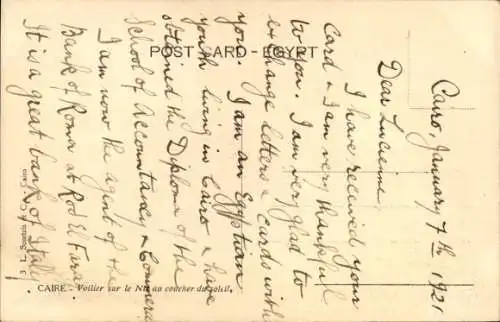 POST CARD - EGYPT
Cairo, January 7th 1921
Dear Lucienne
I have received your
Card & I am very thankful
to you. I am very glad to
exchange letters & cards with
you. I am an Egyptian
youth living in Cairo & have
obtained the Diploma of the
School of Accountancy & Commerce
I am now the agent of the
Bank of Roma at Rod El Farag.
It is a great bank of Italy
CAIRE - Voilier sur le Nil au coucher du soleil.